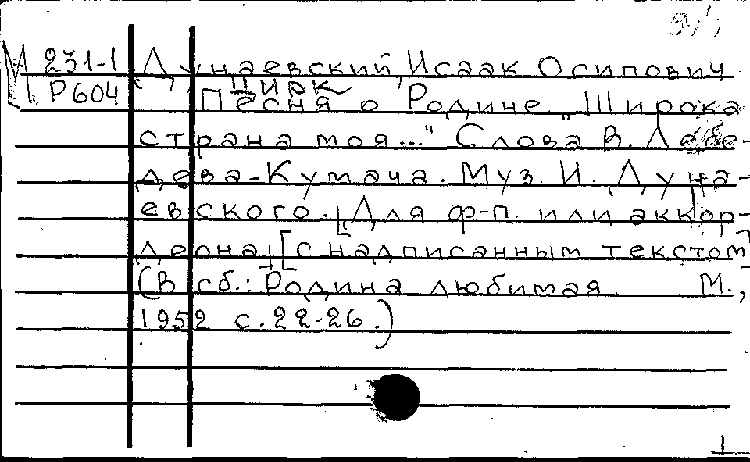 М 231-1 Дунаевский, Исаак Осипович
Цирк
Р604 Песня о Родине. "Широка
страна моя..." Слова В. Лебе-
дева-Кумача. Муз. И. Дуна-
евского. [Для ф-п. или аккор-
деона] [с надписанным текстом]
(В сб.: Родина любимая. М.,
1952 с. 22-26.)
1